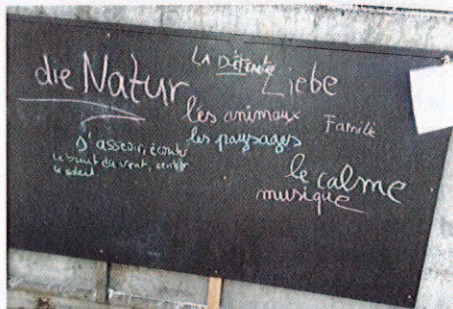 La Détente
die Natur
Liebe
les animaux
Famille
les paysages
S'asseoir, écouter
le bruit du vent, sentir
le soleil
le calme
musique